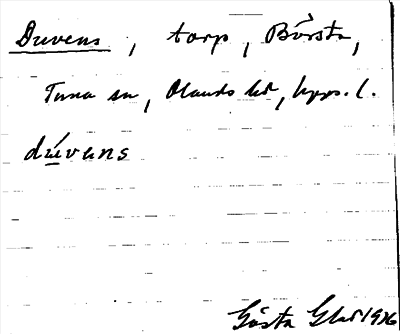 Duvens, torp, Börsta,
Tuna sn, Olands hd, Upps. l.
dúvens
Gösta